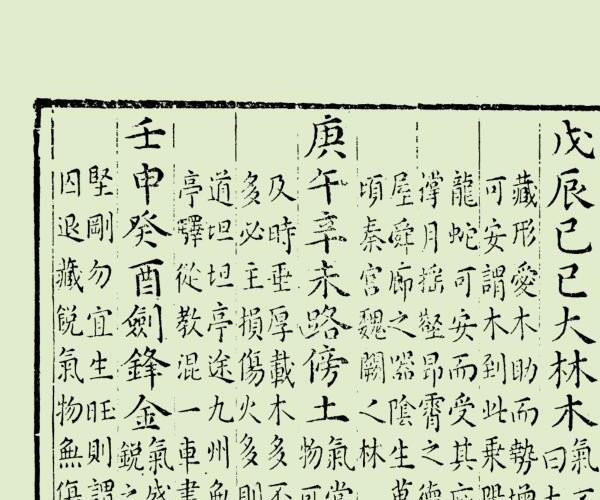 戊辰己巳大林木氣
曰
藏形愛木助而勢增
可安謂木到此乗
龍蛇可安而受其
撑月揺壑昻霄之德
屋舜廊之器陰生萬
頃秦宮魏闕之林
庚午辛未路傍土氣當
物可
及時埀厚載木多不
多必主損傷火多則
道坦坦亭途九州無
亭驛從教混一車書
壬申癸酉劍鋒金氣成
銳之
堅剛勿宜生旺則謂
囚退藏銳氣物無傷